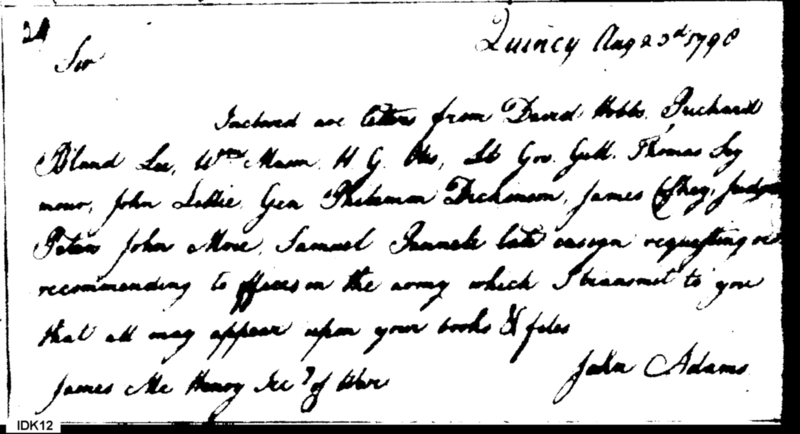 24
Quincy Aug 23d 1798
Sir
Inclosed are letters from David Hobbs, Richard
Bland Lee, Wm Mason, H G. Otis, Lt Gov. Gill, Thomas Sey
mour, John Gen Philemon Dickinson, James Judge
Peters John More, Samuel late ensign requesting or
recommending to offices in the army which I transmit to you
that all may appear upon your books & files
John Adams
James Mc Henry Secy of War
IDK12